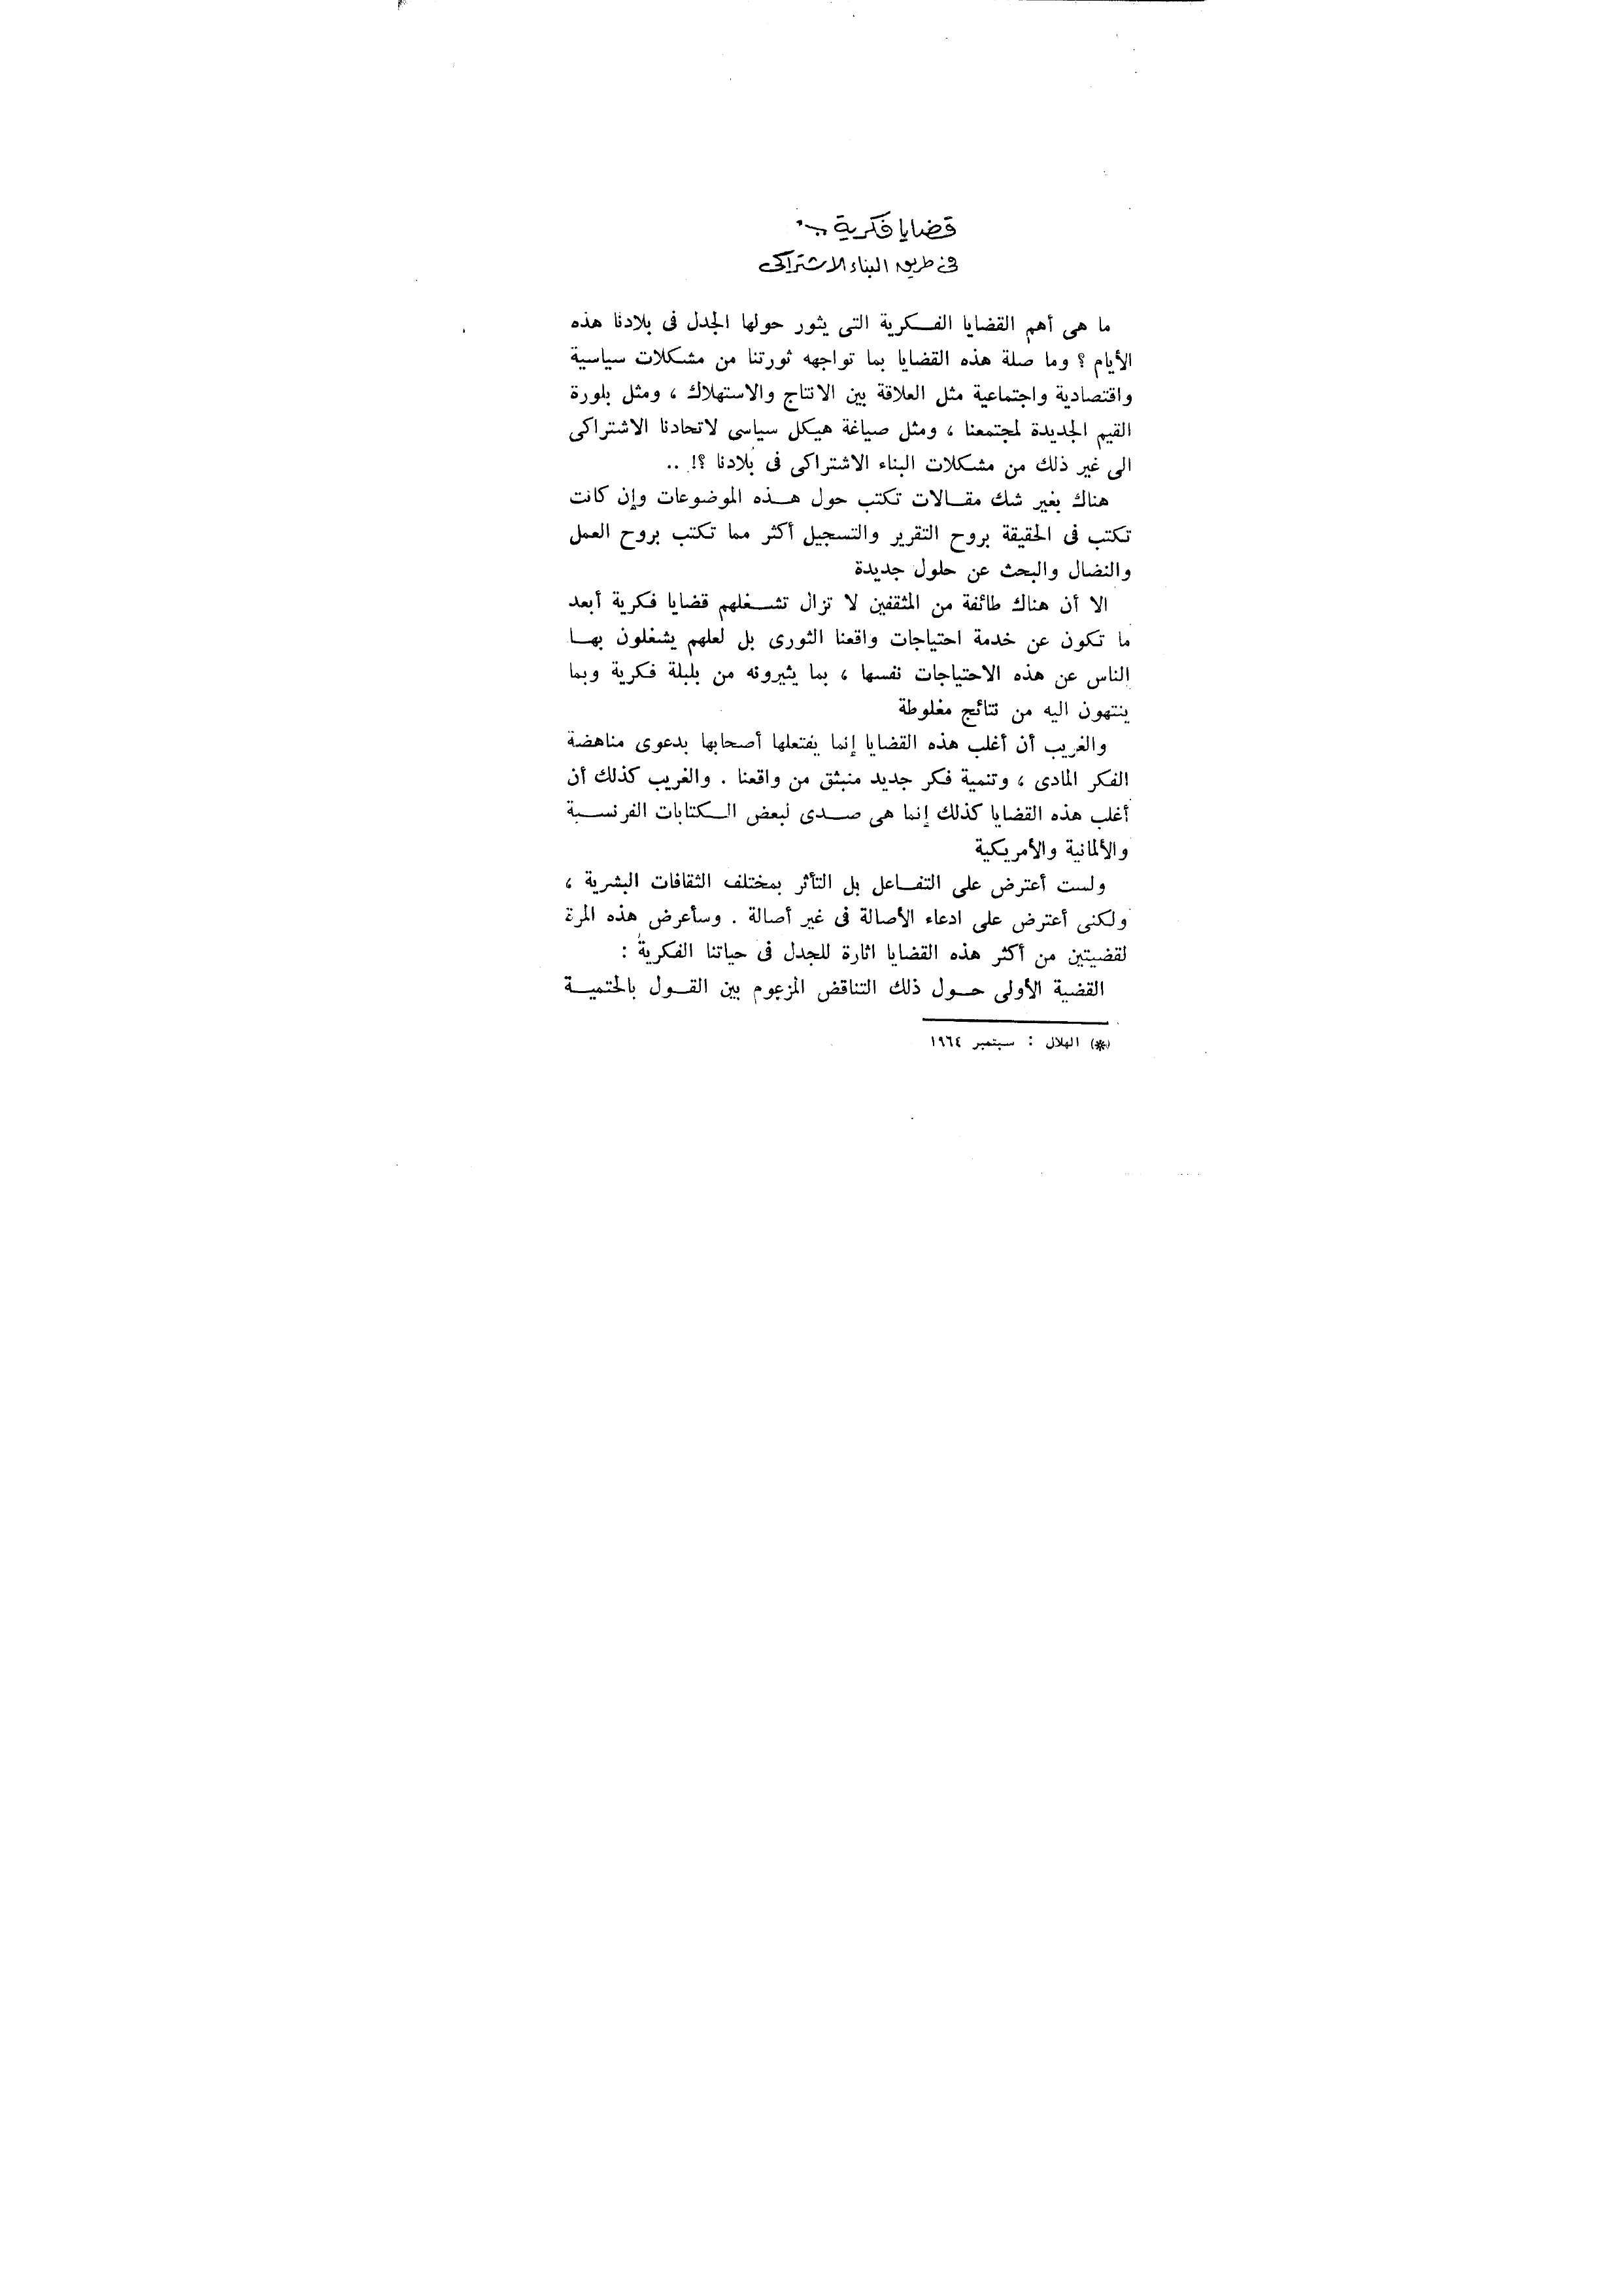 قضايا فكرية ..
فى طريق البناء الاشتراكى
ما هى أهم القضايا الفكرية التى يثور حولها الجدل فى بلادنا هذه
الأيام ؟ وما صلة هذه القضايا بما تواجهه ثورتنا من مشكلات سياسية
واقتصادية واجتماعية مثل العلاقة بين الانتاج والاستهلاك ، ومثل بلورة
القيم الجديدة لمجتمعنا ، ومثل صياغة هيكل سياسى لاتحادنا الاشتراكى
الى غير ذلك من مشكلات البناء الاشتراكى فى بلادنا ؟! ..
هناك بغير شك مقالات تكتب حول هذه الموضوعات وإن كانت
تكتب فى الحقيقة بروح التقرير والتسجيل أكثر مما تكتب بروح العمل
والنضال والبحث عن حلول جديدة
الا أن هناك طائفة من المثقفين لا تزال تشغلهم قضايا فكرية أبعد
ما تكون عن خدمة احتياجات واقعنا الثورى بل لعلهم يشغلون بها
الناس عن هذه الاحتياجات نفسها ، بما يثيرونه من بلبلة فكرية وبما
ينتهون اليه من نتائج مغلوطة
والغريب أن أغلب هذه القضايا إنما يفتعلها أصحابها بدعوى مناهضة
الفكر المادى ، وتنمية فكر جديد منبثق من واقعنا . والغريب كذلك أن
أغلب هذه القضايا كذلك إنما هى صدى لبعض الكتابات الفرنسية
والألمانية والأمريكية
ولست أعترض على التفاعل بل التأثر بمختلف الثقافات البشرية ،
ولكنى أعترض على ادعاء الأصالة فى غير أصالة . وسأعرض هذه المرة
لقضيتين من أكثر هذه القضايا اثارة للجدل فى حياتنا الفكرية :
القضية الأولى حول ذلك التناقض المزعوم بين القول بالحتمية
(*) الهلال : سبتمبر ١٩٦٤